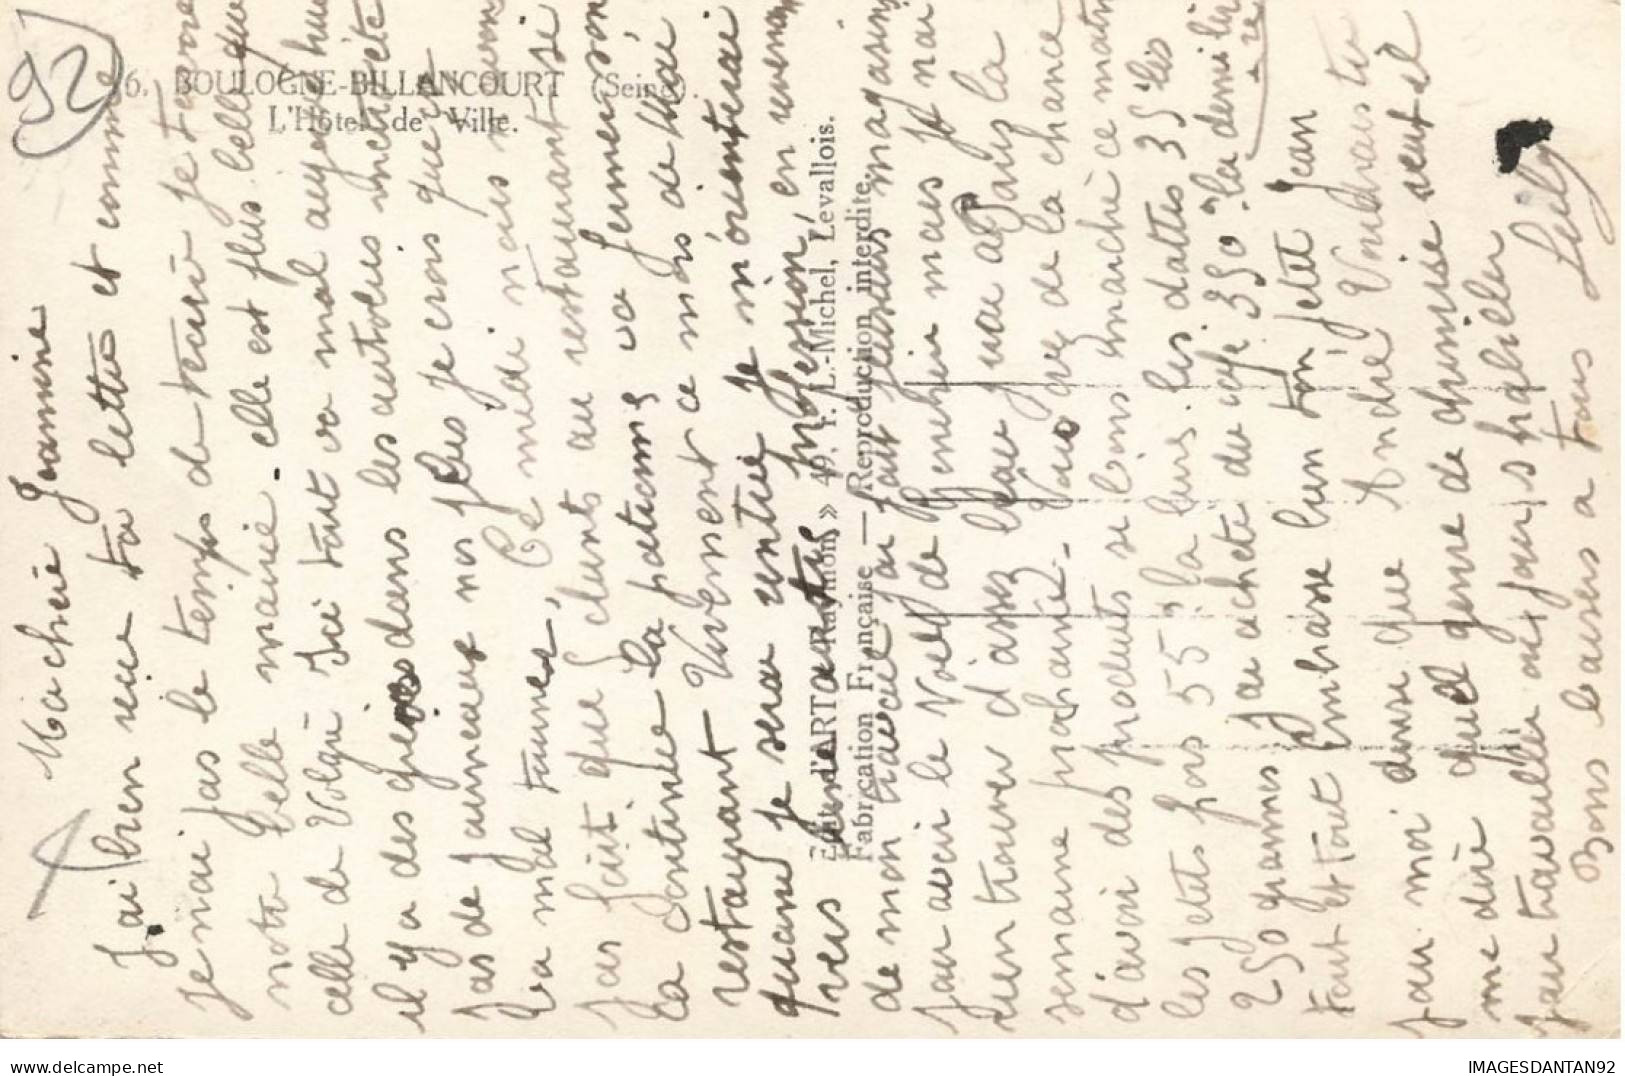 92
6. BOULOGNE-BILLANCOURT (Seine).
L'Hôtel de Ville.
Ma chère Jeannine
J'ai bien recu ta lettre et comme
je nai pas le temps de tecrire je tenvoie
notre belle mairie. elle est plus belle que
celle de Volgré Ici tout va mal aujourd'hui
il y a des dans les autobus metro etc
pas de journeaux non plus je crois que ca
va mal tourner, Ce midi nous avons
pas fait que clients au restaurant si
ca continue la patronne va fermer son
restaurant Vivement ce mois de Mai
quand je serai rentrée je m'orienterai
vers une autre profession, en revenant
de mon travail j'ai fait plusieurs magasins
pour avoir le Voile de mais je nai
rien trouver d'assez beau jirai a Paris la
semaine prochaine. Vous avez de la chance
d'avoir des produits si bons marché ce matin
les petits pois 55 la livre les dattes 35 les
250 grammes j'ai acheté du café 350 la demi livre
Tout et tout Embrasse bien ton petit Jean
pour moi ainsi que André Voudrais tu
me dire quel genre de chemise veut il
pour travailler ou pour s habiller
Bons baisers a tous Lulu
Edit. d'ART « Raymon » 49, r. L.-Michel, Levallois.
Fabrication Française — Reproduction interdite.
IMAGESDANTAN92
delcampe.net